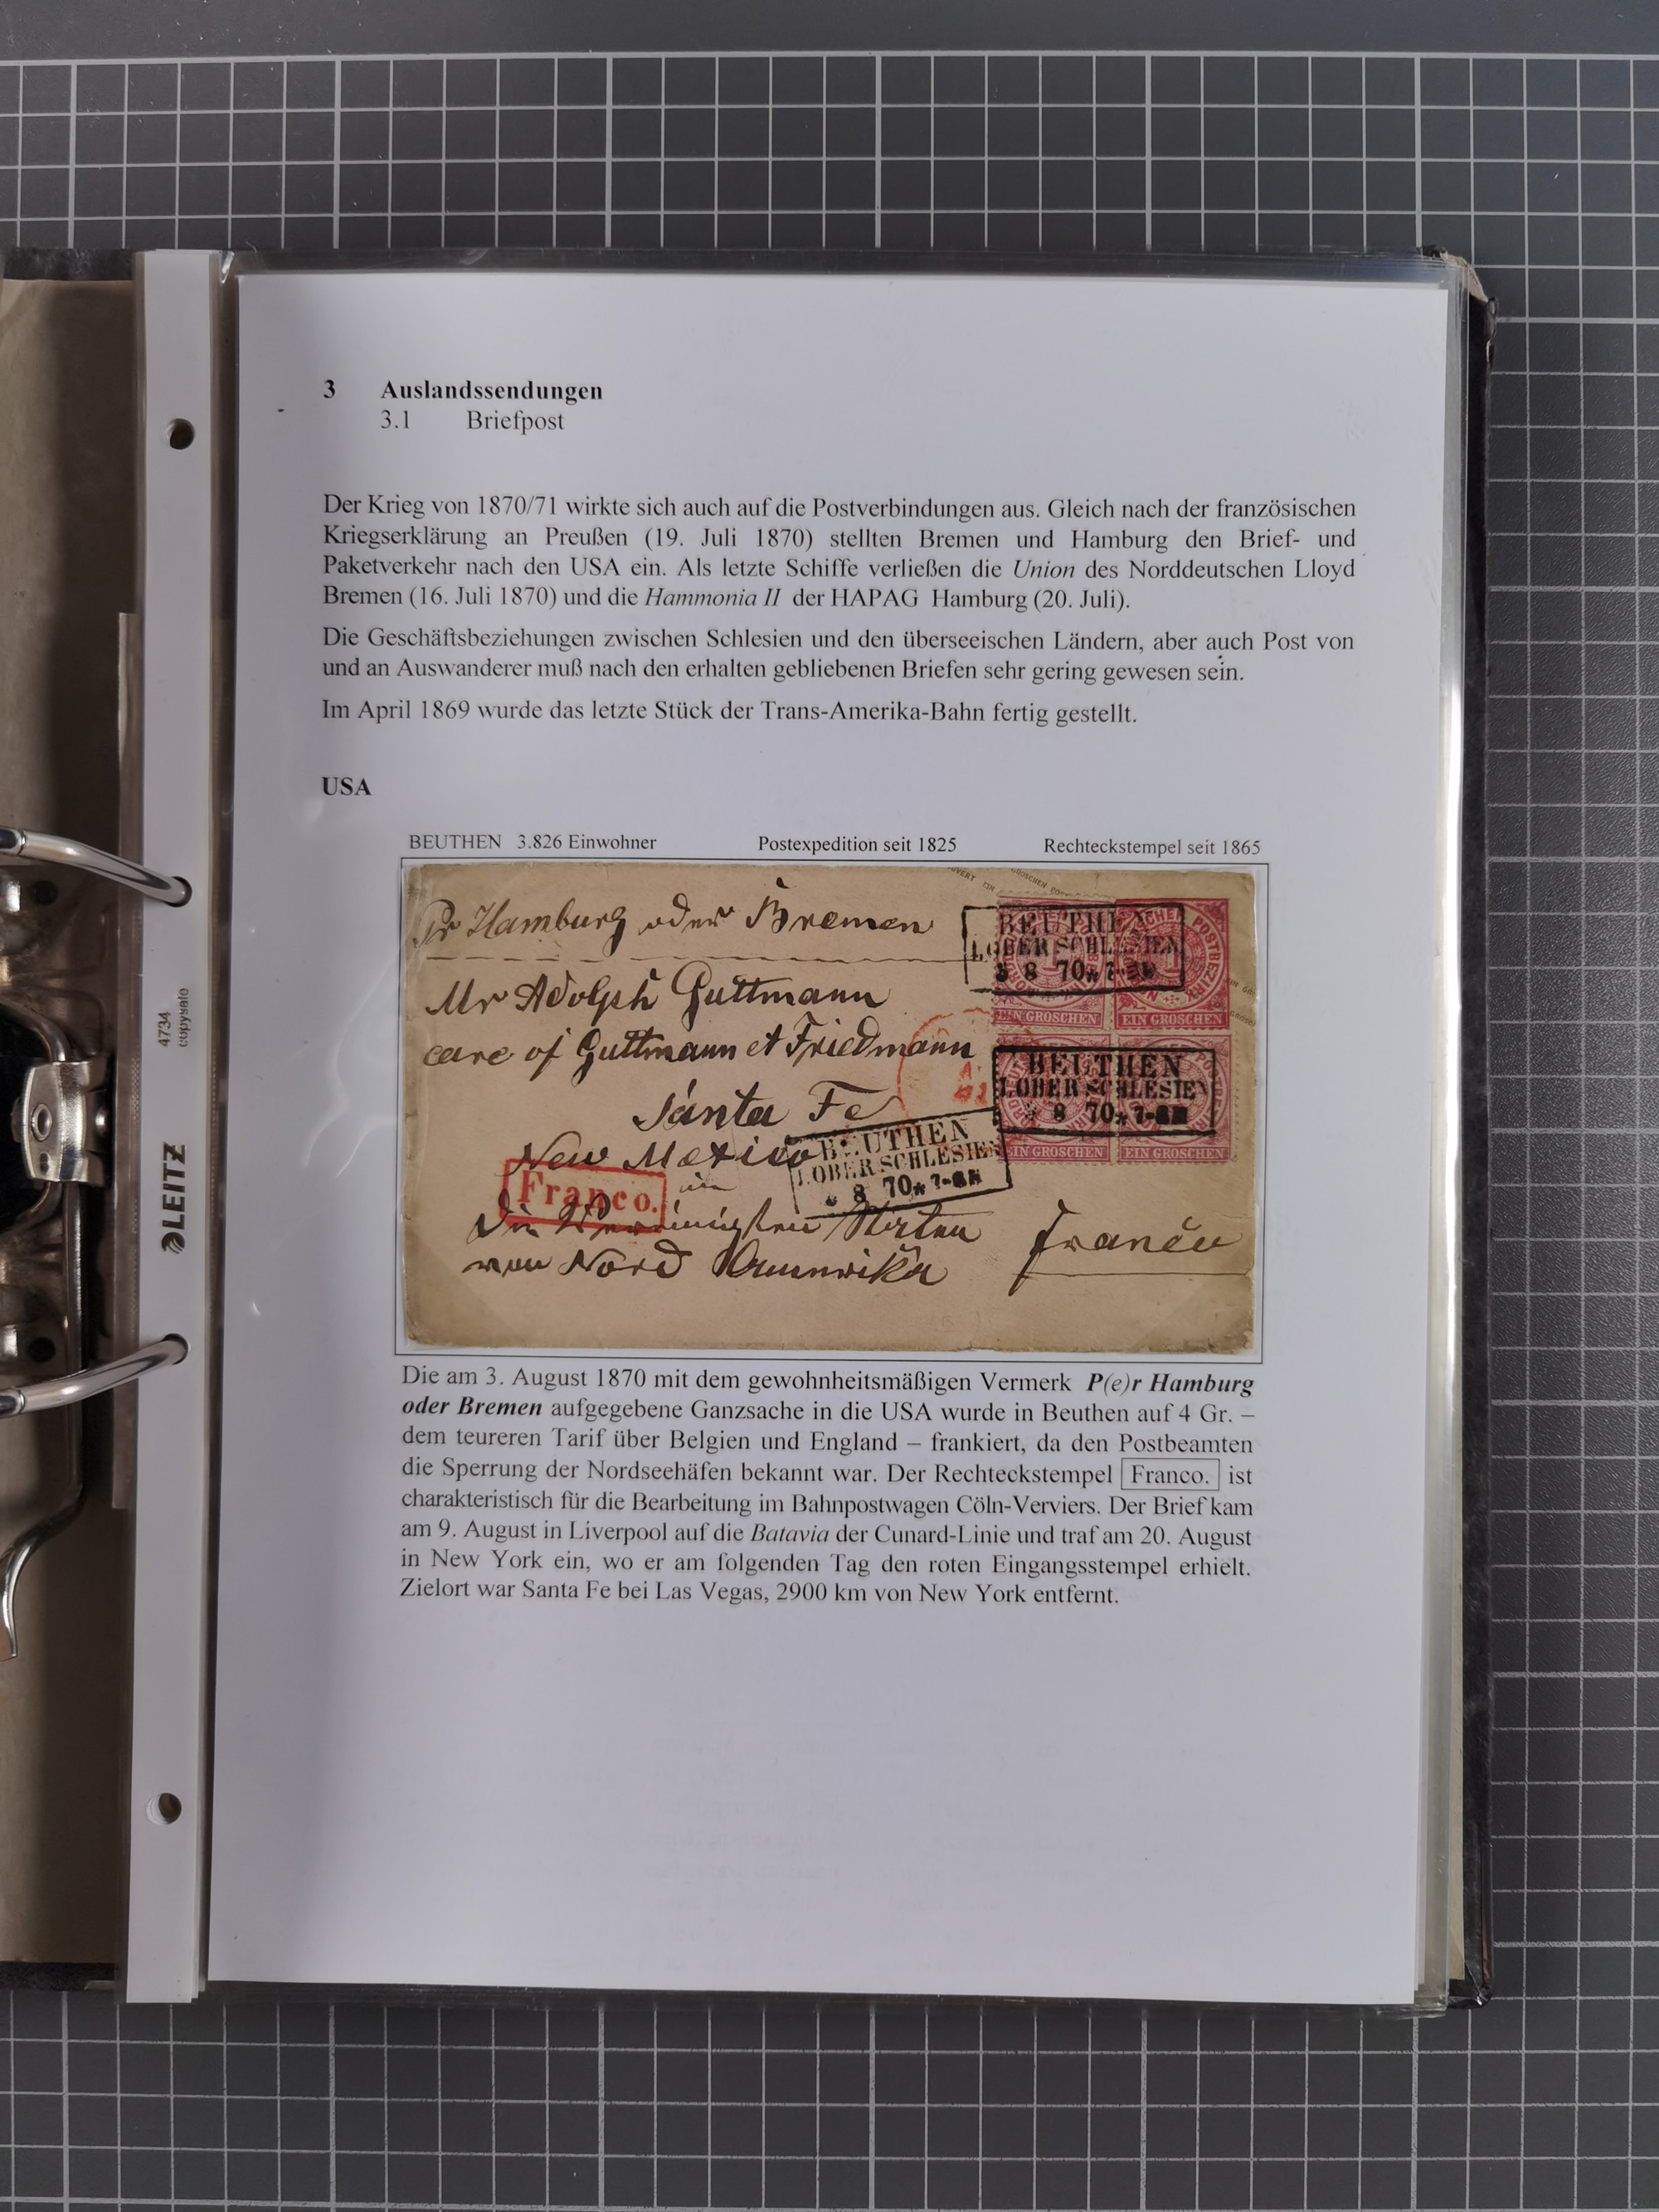 3 Auslandssendungen
3.1 Briefpost
Der Krieg von 1870/71 wirkte sich auch auf die Postverbindungen aus. Gleich nach der französischen
Kriegserklärung an Preußen (19. Juli 1870) stellten Bremen und Hamburg den Brief- und
Paketverkehr nach den USA ein. Als letzte Schiffe verließen die Union des Norddeutschen Lloyd
Bremen (16. Juli 1870) und die Hammonia II der HAPAG Hamburg (20. Juli).
Die Geschäftsbeziehungen zwischen Schlesien und den überseeischen Ländern, aber auch Post von
und an Auswanderer muß nach den erhalten gebliebenen Briefen sehr gering gewesen sein.
Im April 1869 wurde das letzte Stück der Trans-Amerika-Bahn fertig gestellt.
USA
BEUTHEN 3.826 Einwohner Postexpedition seit 1825 Rechteckstempel seit 1865
Pr Hamburg oder Bremen
Mr Adolph Guttmann
care of Guttmann et Friedmann
Santa Fe
New Mexico
in
Franco.
Die Vereinigten Staten
von Nord Amerika
Franco
BEUTHEN
I. OBER SCHLESIEN
3 8 70 * 7-8N
EIN GROSCHEN
EIN GROSCHEN
BEUTHEN
I. OBER SCHLESIEN
8 70 * 7-8N
EIN GROSCHEN
EIN GROSCHEN
BEUTHEN
I. OBER SCHLESIEN
8 70 * 7-8N
Die am 3. August 1870 mit dem gewohnheitsmäßigen Vermerk P(e)r Hamburg
oder Bremen aufgegebene Ganzsache in die USA wurde in Beuthen auf 4 Gr. –
dem teureren Tarif über Belgien und England – frankiert, da den Postbeamten
die Sperrung der Nordseehäfen bekannt war. Der Rechteckstempel Franco. ist
charakteristisch für die Bearbeitung im Bahnpostwagen Cöln-Verviers. Der Brief kam
am 9. August in Liverpool auf die Batavia der Cunard-Linie und traf am 20. August
in New York ein, wo er am folgenden Tag den roten Eingangsstempel erhielt.
Zielort war Santa Fe bei Las Vegas, 2900 km von New York entfernt.
LEITZ
4734
copysafe